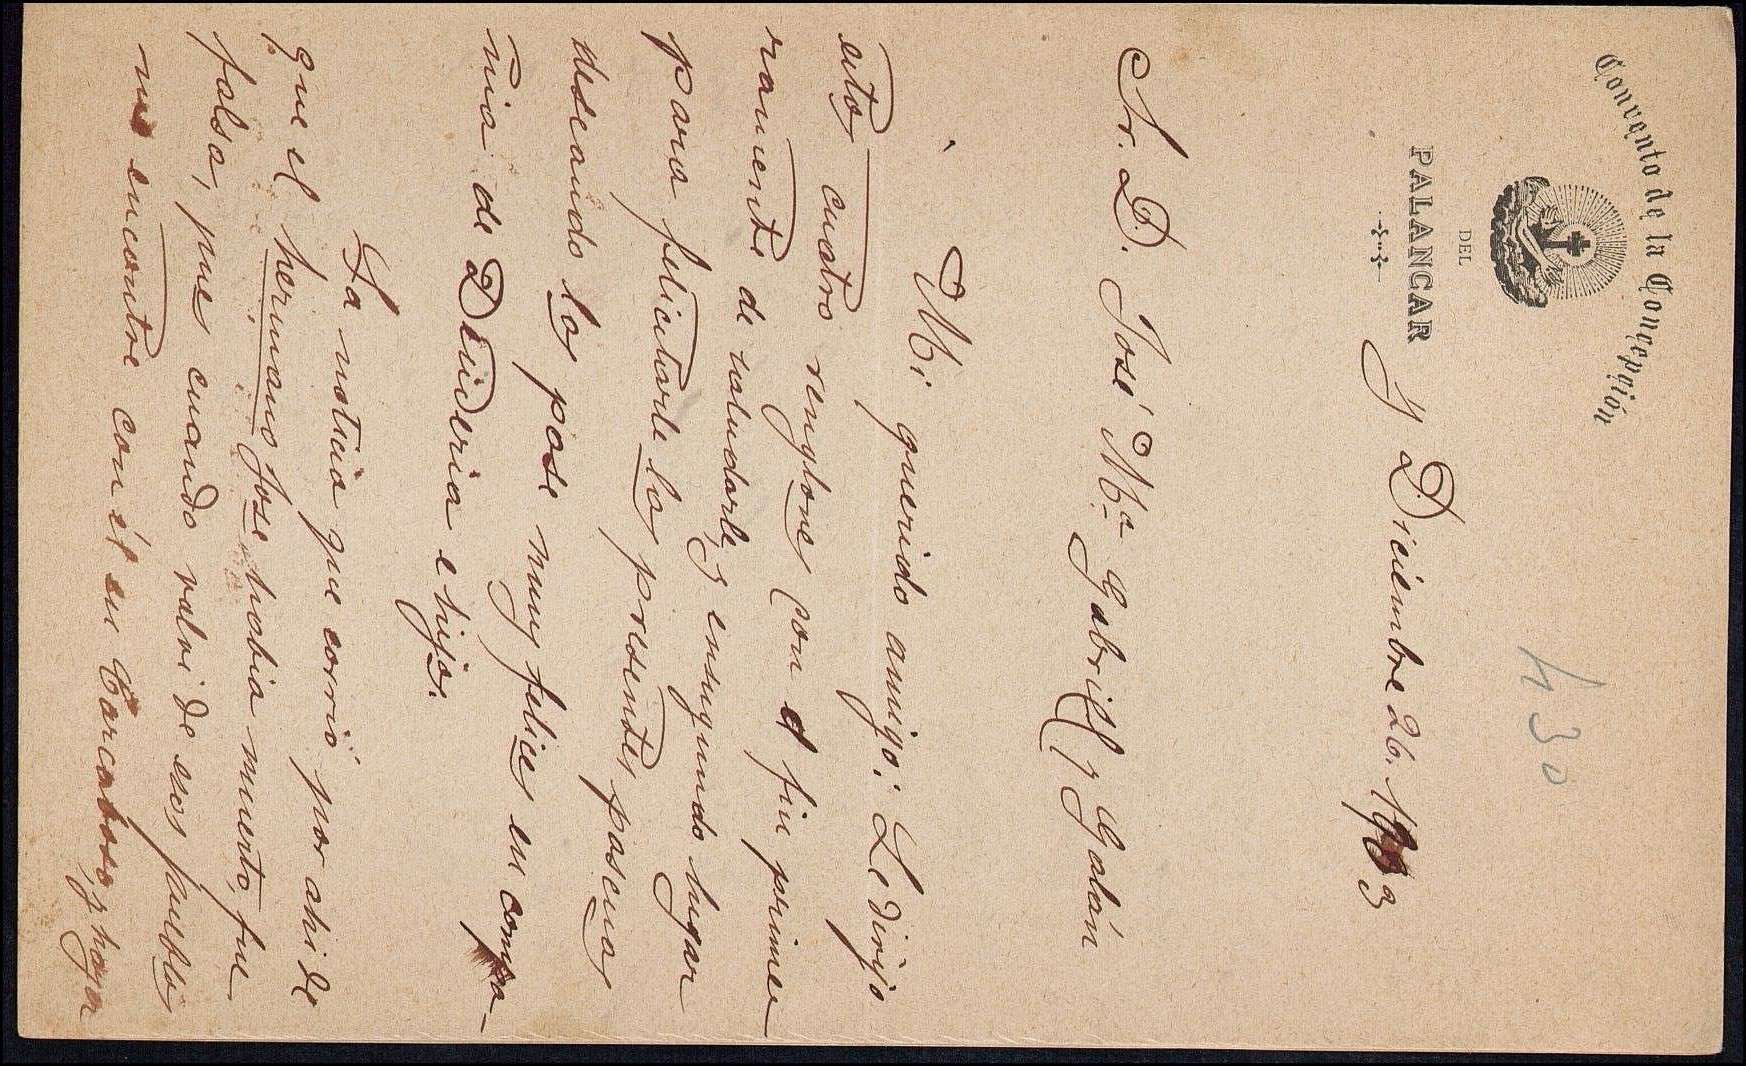 Convento de la Concepción
DEL
PALANCAR
y Diciembre 26. 1903
430
Sr. D. José Mª Gabriel y Galán
Mi querido amigo: Le dirijo
estos cuatro renglones con el fin primer
ramente de saludarle, y ensegundo lugar
para felicitarle las presentes pascuas
deseando las pase muy felices en compa-
ñia de Desideria e hijos.
La noticia que corrió por ahi de
que el hermano José habia muerto, fue
falsa, pues cuando volvi de esos pueblos
me encontre con él en Carcaboso, y hoya